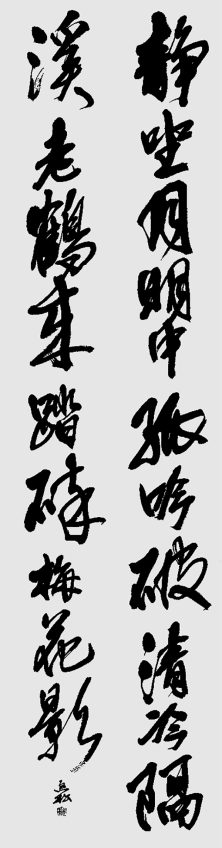 静坐月明中孤吟破清冷隔
溪老鶴来踏碎梅花影